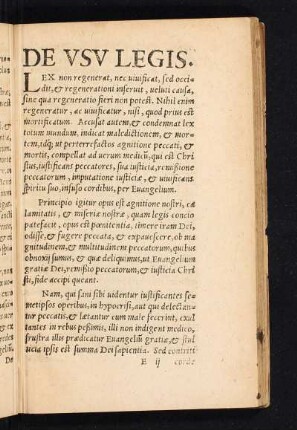 DE VSV LEGIS.
LEX non regenerat, nec uiuificat, sed occi-
dit, & regenerationi inseruit, ueluti causa,
sine qua regeneratio fieri non potest. Nihil enim
regeneratur, ac uiuificatur, nisi, quod prius est
mortificatum. Accusat autem, & condemnat lex
totum mundum, indicat maledictionem, & mor-
tem, idq; ut perterrefactos agnitione peccati, &
mortis, compellat ad uerum medicū, qui est Chri
stus, iustificans peccatores, sua iusticia, remissione
peccatorum, imputatione iusticiæ, & uiuificans
spiritu suo, infuso cordibus, per Euangelium.
Principio igitur opus est agnitione nostri, ca
lamitatis, & miseriæ nostræ, quam legis concio
patefacit, opus est pœnitentia, timere iram Dei,
odisse, & fugere peccata, & expauescere, ob ma
gnitudinem & multitudinem peccatorum, quibus
obnoxij sumus, & quæ deliquimus, ut Euangelium
gratiæ Dei, remissio peccatorum, & iusticia Chri
sti, fide accipi queant.
Nam, qui sani sibi uidentur iustificantes se-
metipsos operibus, in hypocrisi, aut qui delectan-
tur peccatis, & lætantur cum male fecerint, exul
tantes in rebus pessimis, illi non indigent medico,
frustra illis prædicatur Euangeliū gratiæ, & stul
ticia ipsis est summa Dei sapientia. Sed contriti
E ij corde